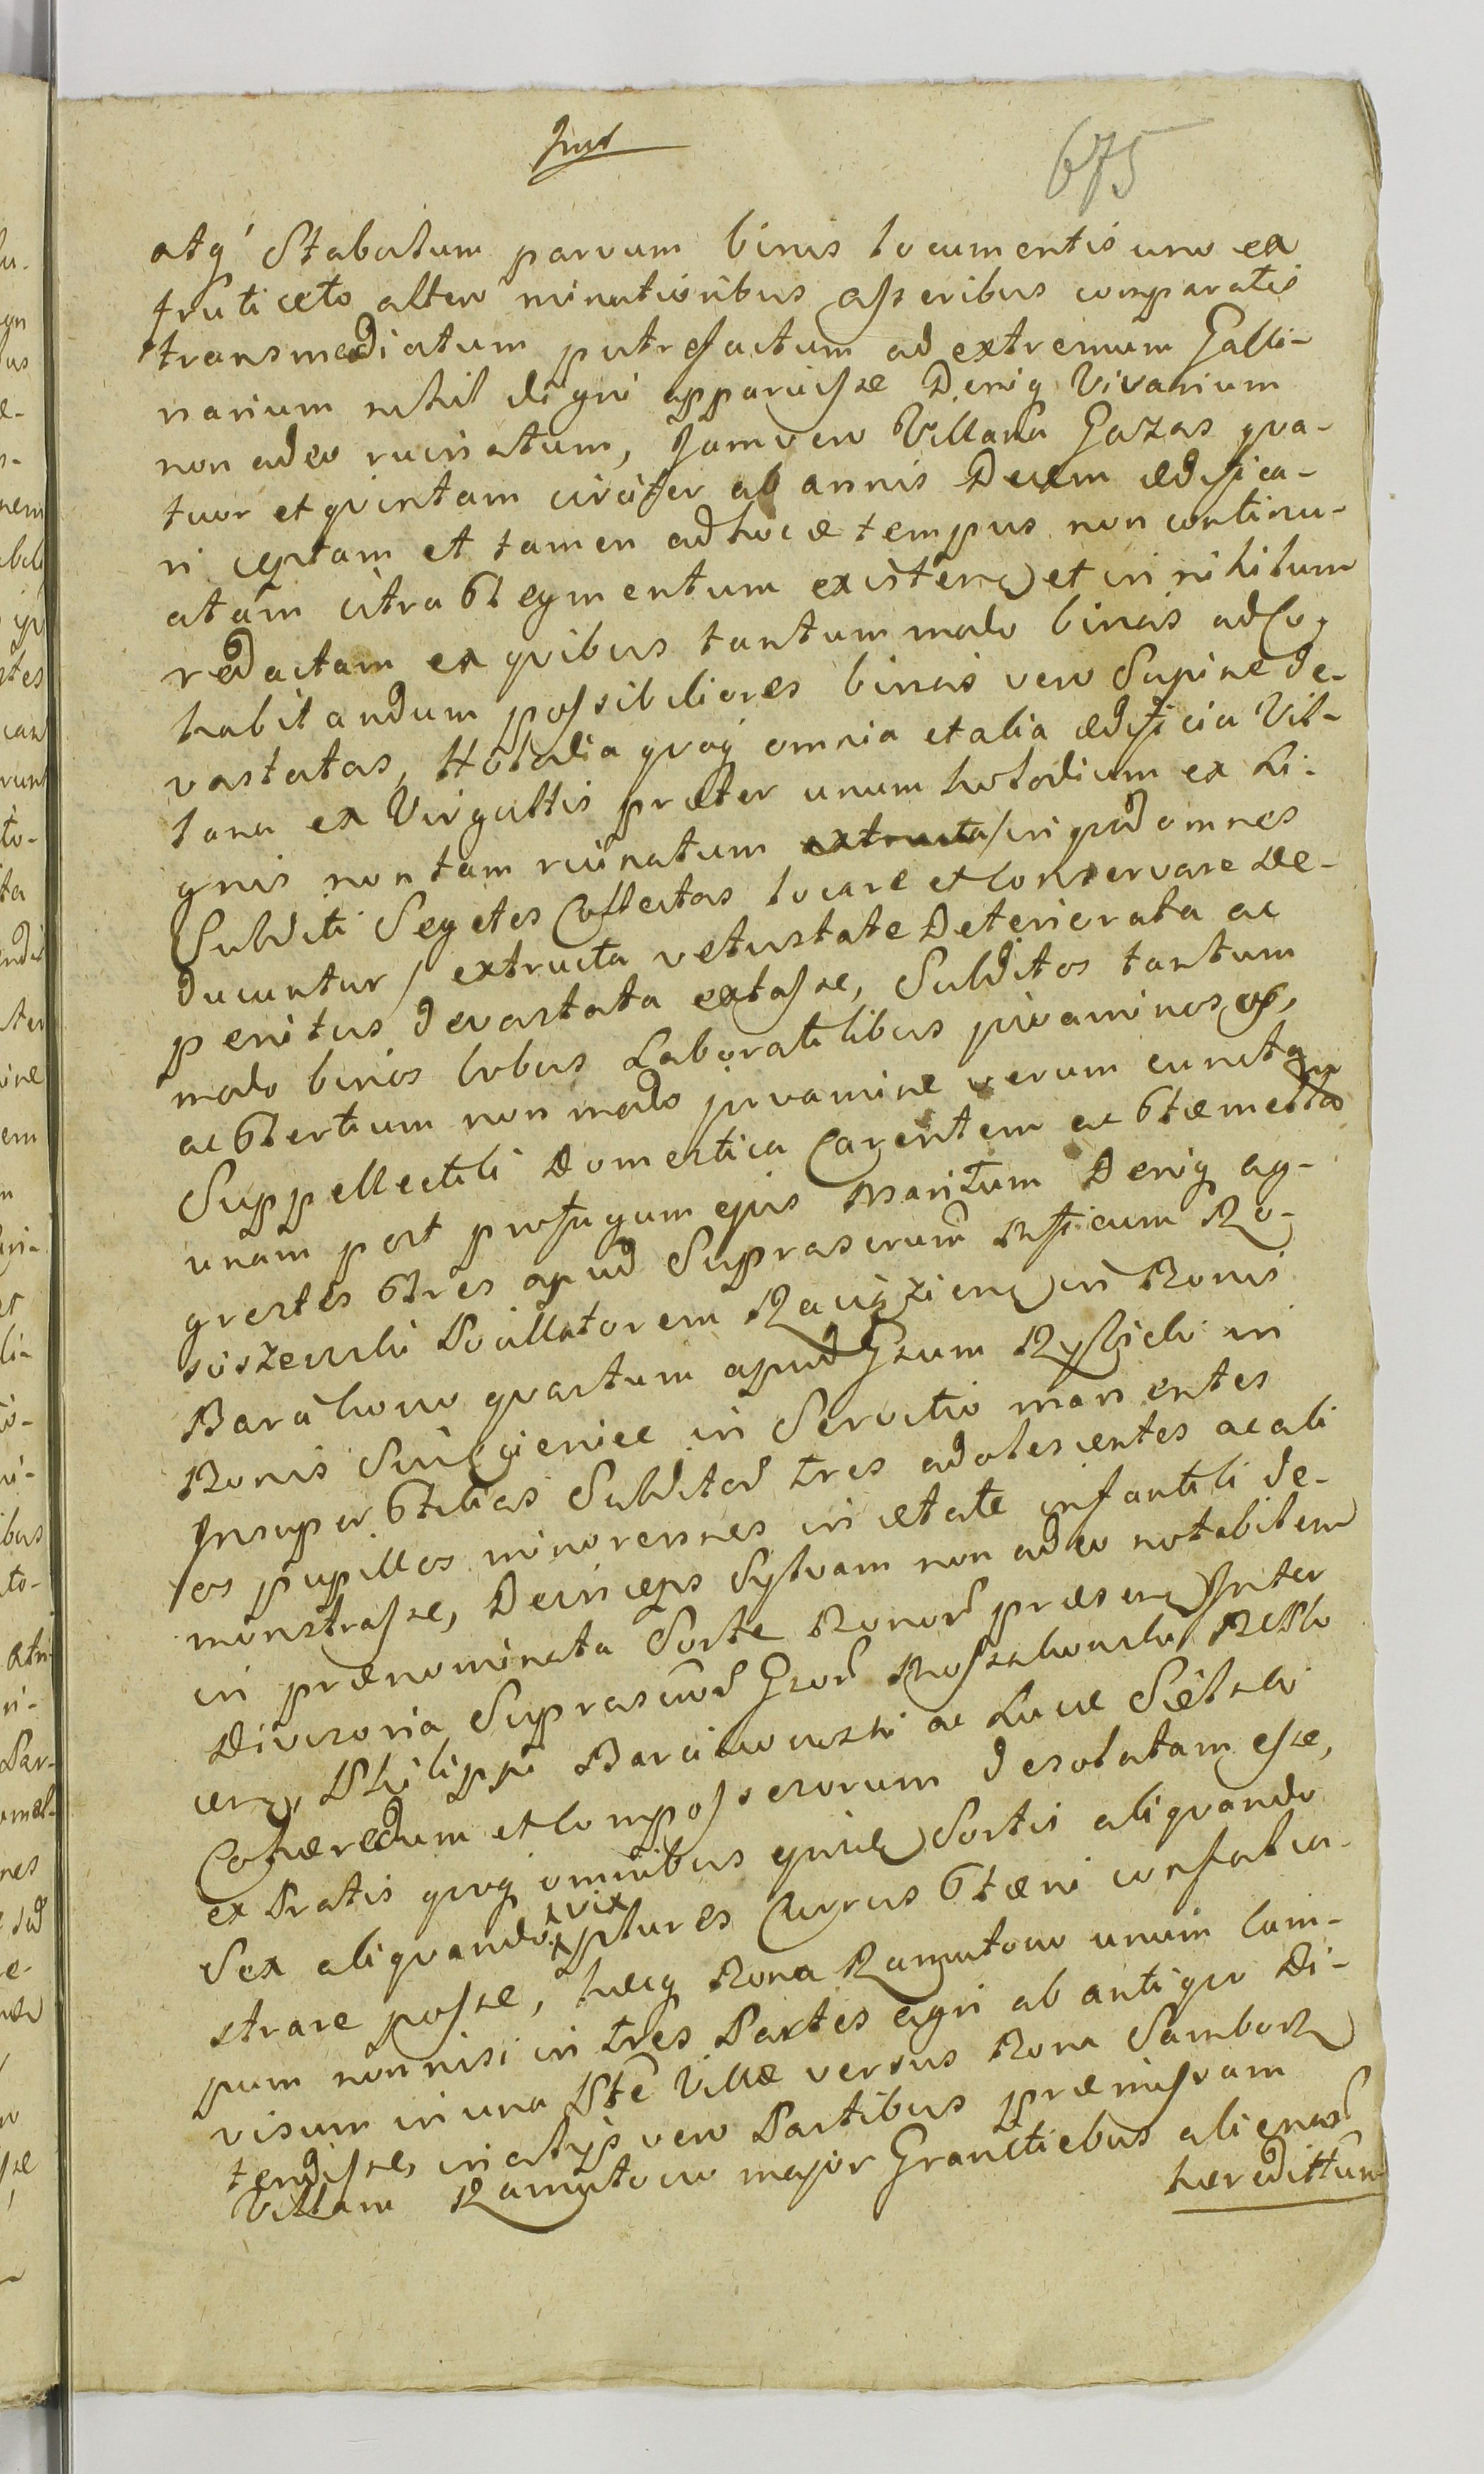 675
atq' Stabulum parvum binis locumentis uno ex
fruticeto altero minutioribus asseribus comparatis
transmediatum putrefactum ad extremum Galli-
narium nihil digni apparuisse Deniq Vivarium
non adeo ruinatum, Jam vero Villana Gazas qva-
tuor et qvintam circiter ab annis Decem ædifica-
ri cæptam et tamen adhocce tempus non continu-
atam citra tegmentum existen et in nihilum
redactam ex qvibus tantummodo binas ad co-
habitandum possibiliores binas vero Supine de-
vastatas, Hòladia qvoq omnia et alia ædificia Vil-
lana ex Virgultis præter unum holodium ex Li-
gnis non tam ruinatum extructa /in qvod omnes
Subditi Segetes Collectas locare et Conservare de-
ducuntur/ extructa vetustate Deteriorata ac
penitus devastata extasse, Subditos tantum
modo binos bobus Laboratilibus juvaminosos,
ac tertium non modo juvamine verum cuncta
Suppellectili Domestica Carentem ac
unam post profugum ejus Maritum Deniq ag-
grestes tres apud Suprascrum Mficum Ro-
siszewski Pocillatorem Raciążien in Bonis
Barcikowo qvartum apud Gsum Rysicki in
Bonis in Servitio manentes
Insuper filios Subditor tres adolescentes ac ali
os pupillos minorennes in ætate infantili de-
monstrasse, Deinceps Sylvam non adeo notabilem
in prænominata Sorte Bonor præsen Inter
Divisoria Suprascror Gsor
cen, Philippi Barcikowski ac Lucæ Sielski
Cohæredum et Compossessorum desolatam esse,
ex Pratis qvoq omnibus ejusd Sortis aliqvando
Sex aliqvando vix plures Currus fæni confalca-
strare posse, hæcq Bona Ramutowo unum Cam-
pum nonnisi in tres Partes agri ab antiqvo Di-
visum in una Pte Villæ versus Bona Samborz
tendisse, in alijs vero Partibus præmissam
Villam Ramutowo major Granitiebus alienar
hæredittum